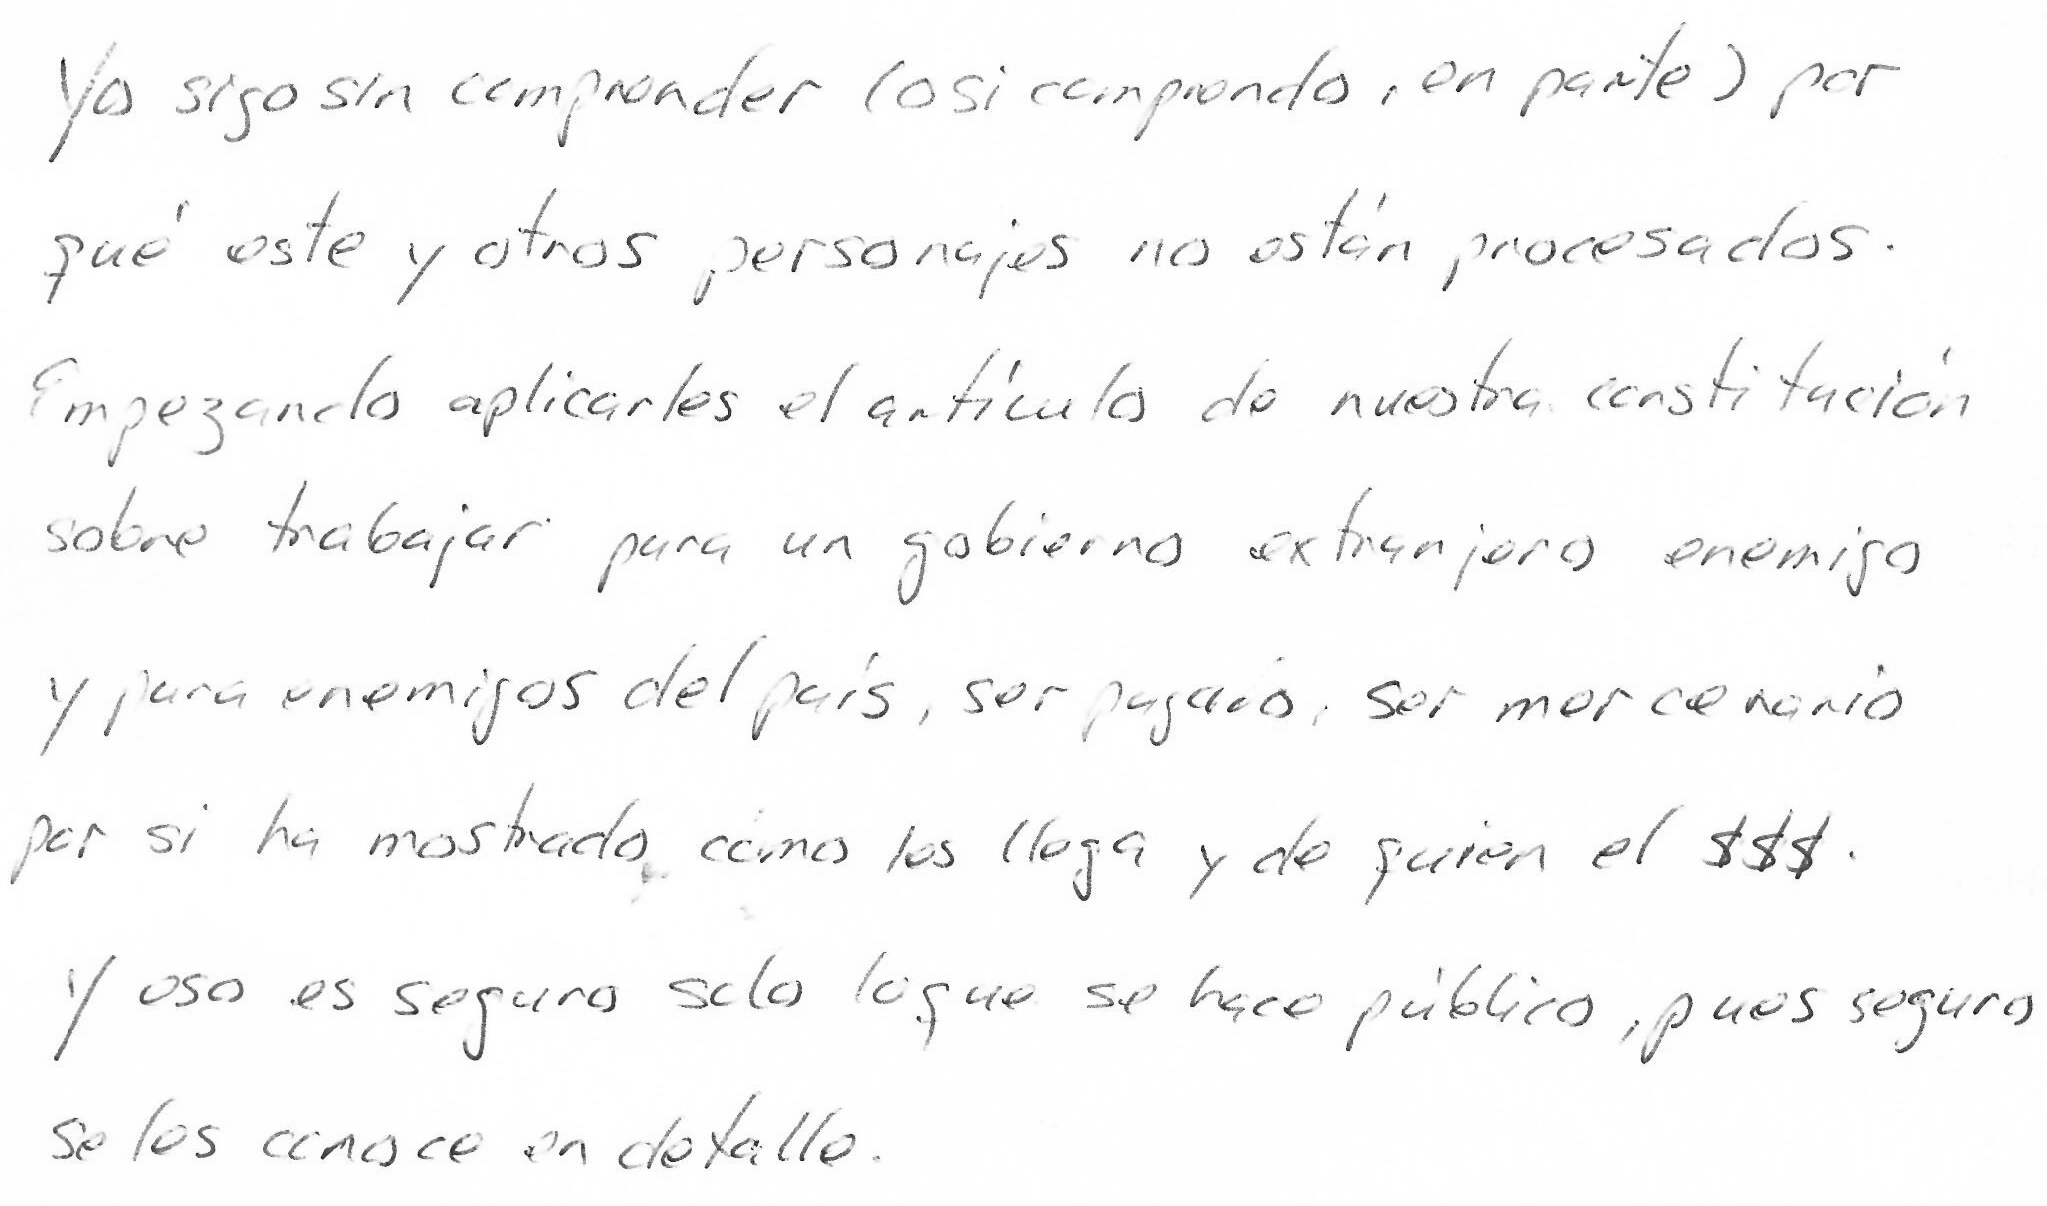 Yo sigo sin comprender (o si comprendo, en parte) por
qué este y otros personajes no están procesados.
Empezando aplicarles el artículo de nuestra constitución
sobre trabajar para un gobierno extranjero enemigo
y para enemigos del país, ser pagado, ser mercenario
por si ha mostrado cómo les llega y de quien el $$$.
Y eso es seguro solo lo que se hace público, pues seguro
se les conoce en detalle.